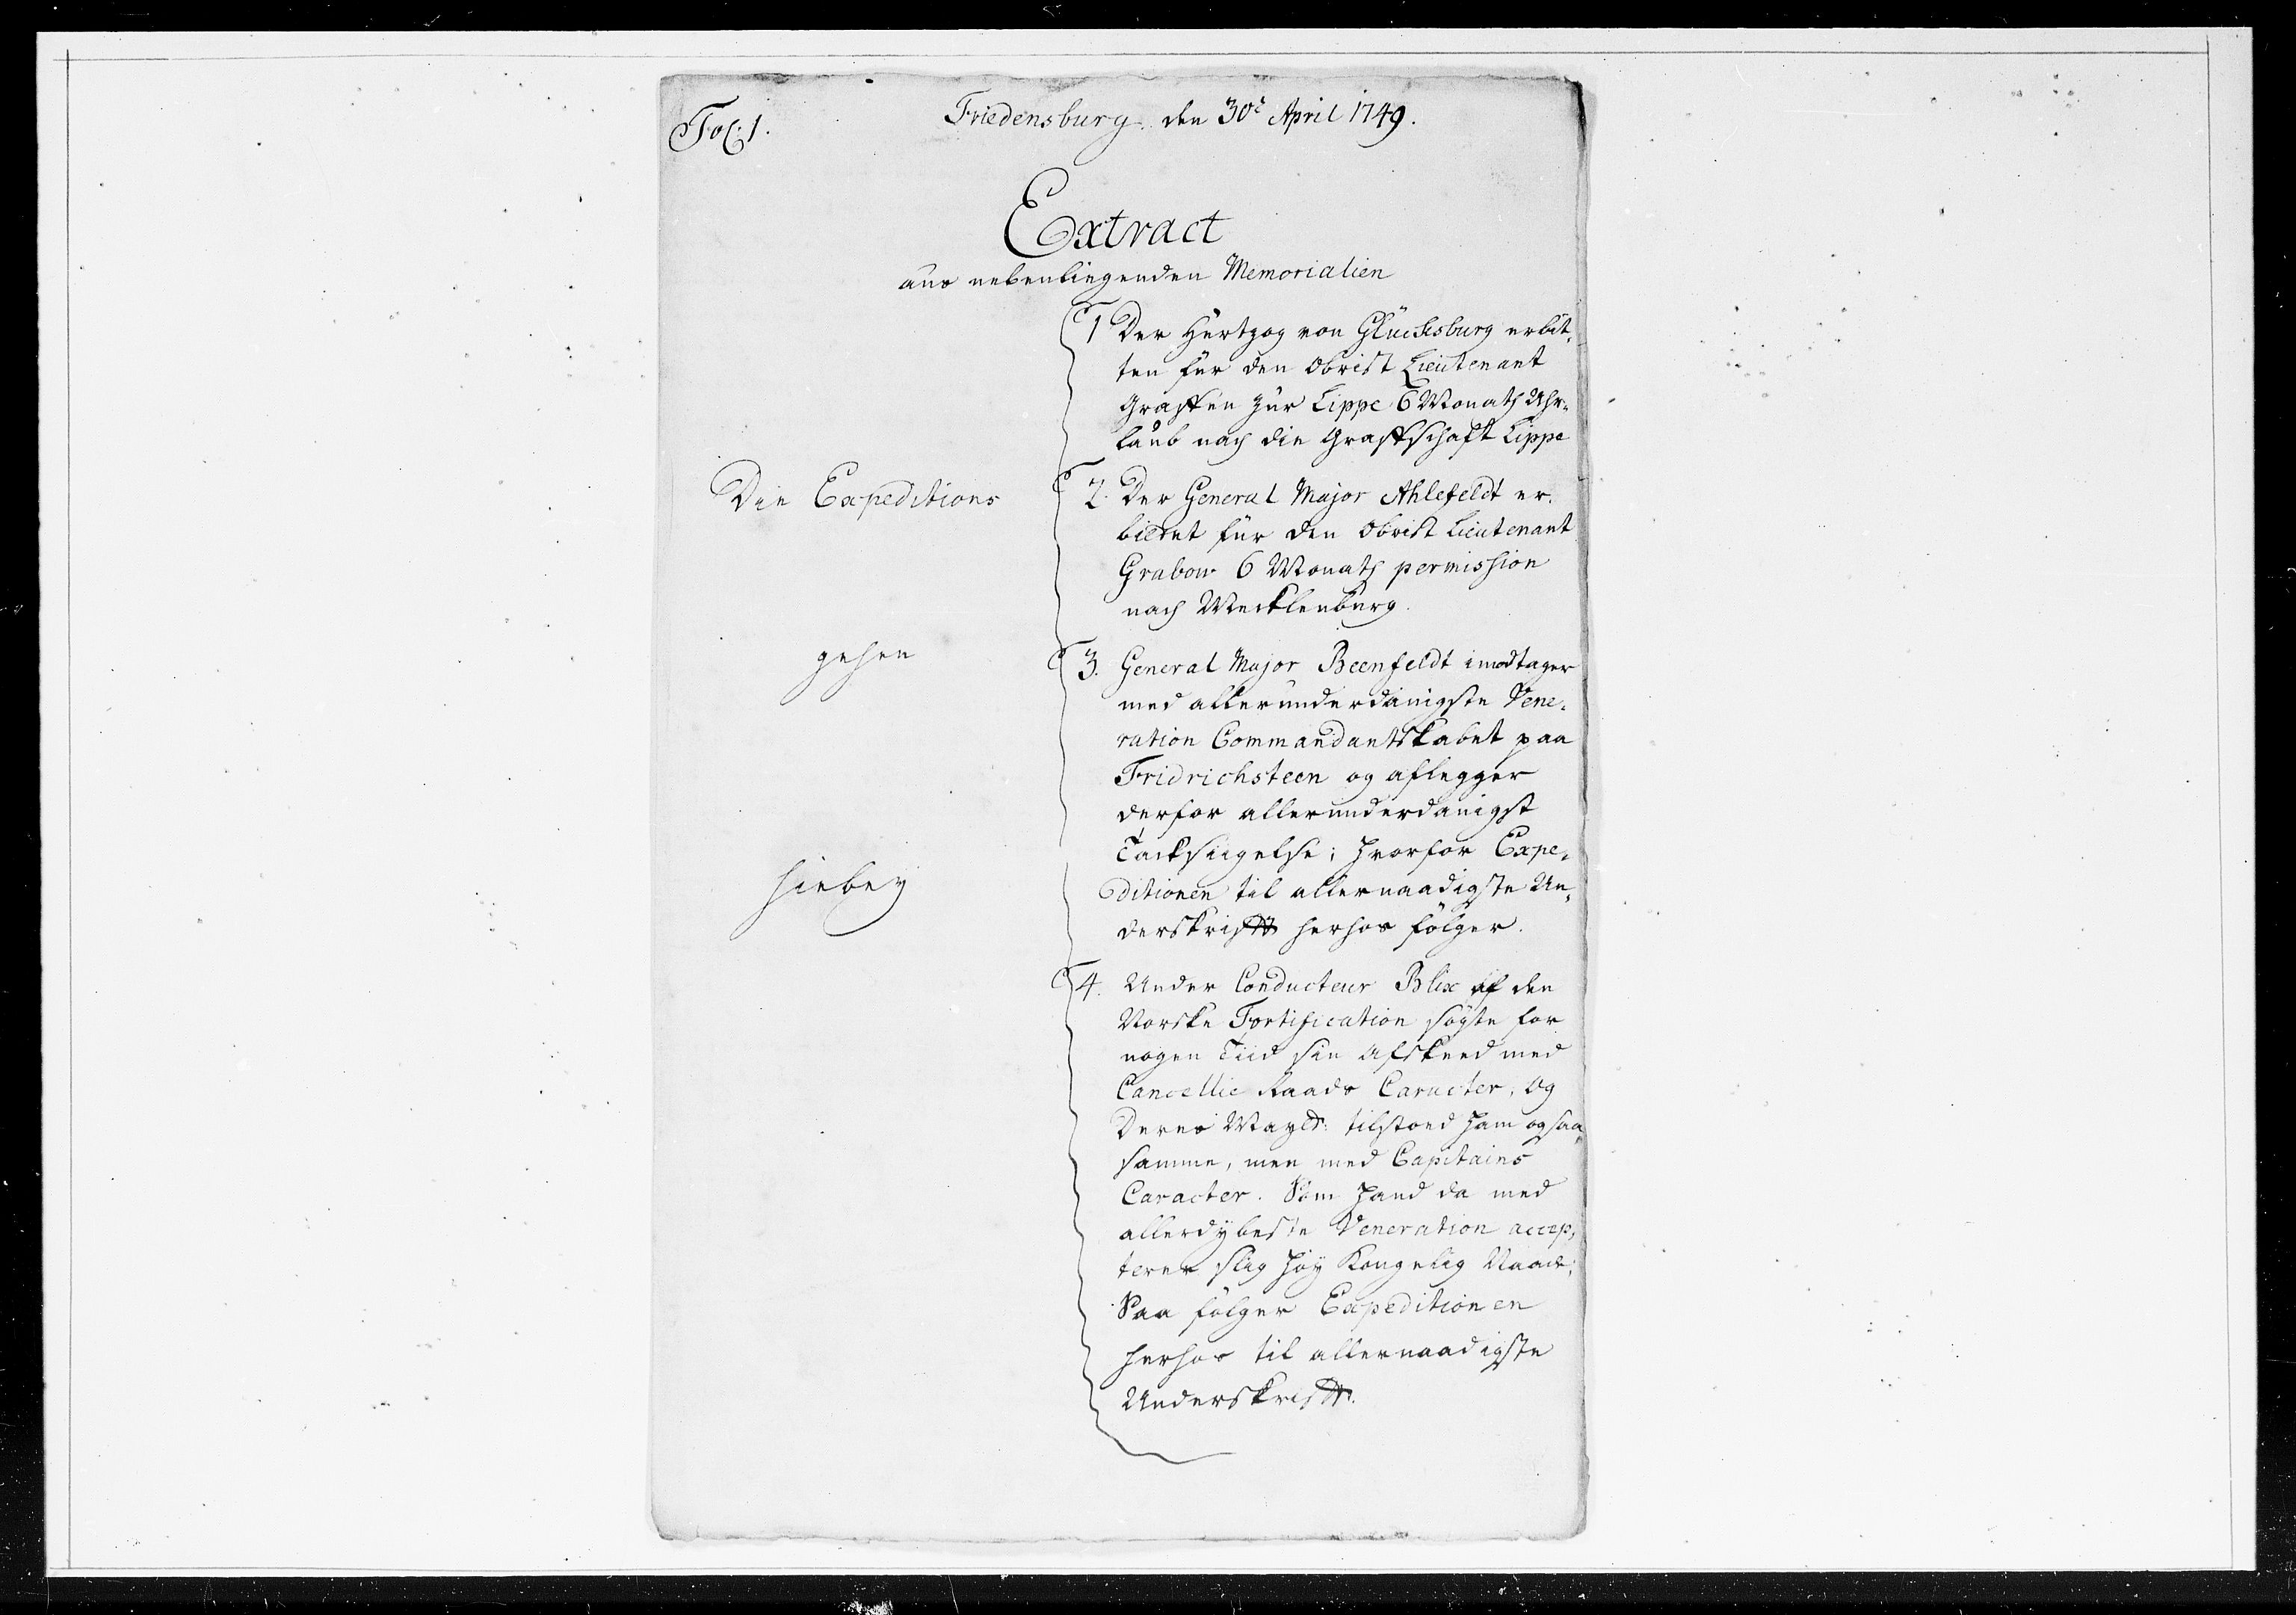 Fol: 1.
Friedensburg. den 30t April 1749.
Extract
aus nebenliegenden Memorialien
1 Der Hertzog von Glücksburg erbit,
ten für den Obrist Lieutenant
Graffen zur Lippe 6 Monath Uhr,
laub nach die Graffschafft Lippe
Die Expeditions
2. Der General Major Ahlefeldt er,
bittet für den Obrist Lieutenant
Grabow 6 Monath permission
nach Mecklenburg.
gehen
3. General Major Beenfeldt imodtager
med allerunderdanigste Vene,
ration Commandantskabet paa
Fridrichsteen og aflegger
derfor allerunderdanigst
Tacksiigelse; hvorfor Expe,
ditionen til allernaadigste Un,
derskrifft herhos fölger.
hiebey
4. Under Conducteur Blix af den
Norske Fortification søgte for
nogen Tiid sin Afskeed med
Cancellie Raads Caracter, og
Deres Mayts: tilstoed ham ogsaa
samme, men med Capitains
Caracter. Som hand da med
allerdybeste Veneration accep,
terer slig høy Kongelig Naade,
Saa fölger Expeditionen
herhos til allernaadigste
Underskrifft.